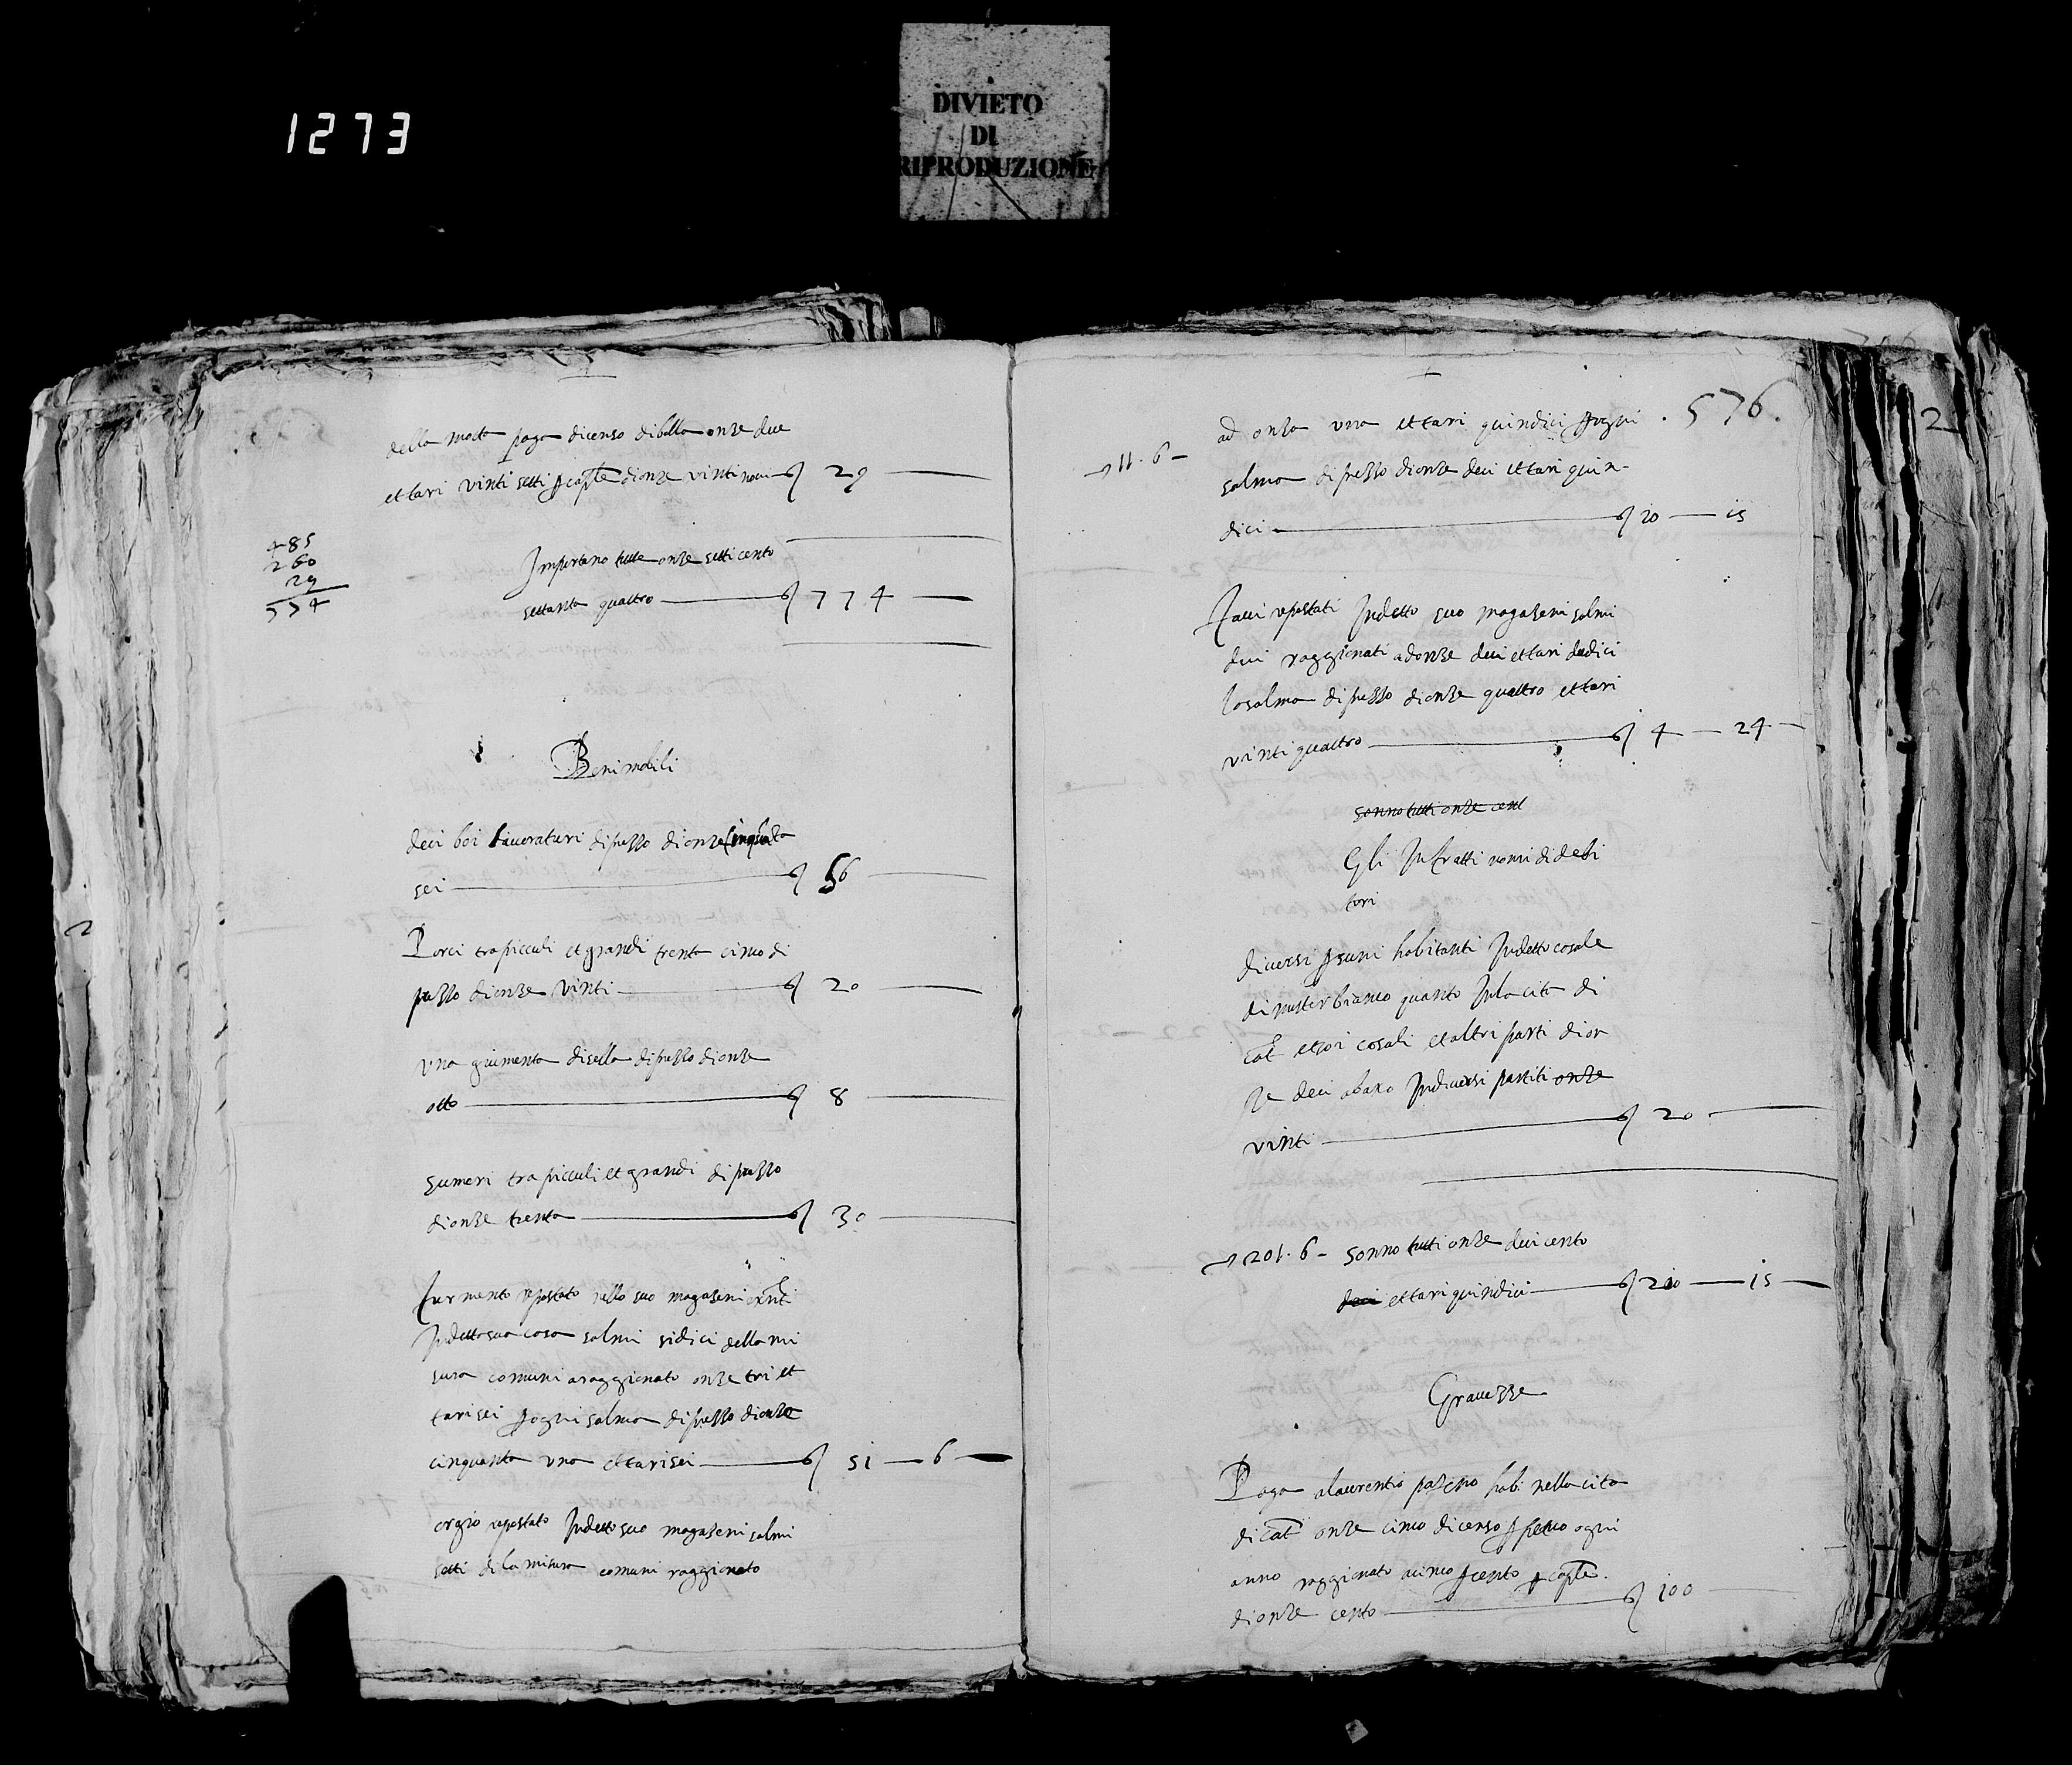 1273
DIVIETO
DI
RIPRODUZIONE
della motta paga dicenso dibolla onze due
et tari vinti setti p caple dionze vintinovi 29
485
260
29
774
Importano tutte onze setticento
settanta quattro 774
Beni mobili
deci boi lavoraturi di prezzo dionze cinquanta
sei 56
Porci tra picculi et grandi trenta cinco di
prezzo dionze vinti 20
una giumenta disella di prezzo dionze
otto 8
sumeri tra picculi et grandi di prezzo
dionze trenta 30
Furmento repostato nello suo magaseni
Indetto sua casa salmi sidici della mi
sura comuni araggionato onze tri et
tari sei p ogni salma di prezzo dionze
cinquanta una et tari sei 51 — 6
orgio repostato Indetto suo magaseni salmi
setti di la misura comuni raggionato
576.
2
11.6
ad onza una et tari quindici p ogni
salma di prezzo dionze deci et tari quin-
dici 10 — 15
Favi repostati Indetto suo magaseni salmi
dui raggionati adonze dui et tari dudici
la salma di prezzo dionze quattro et tari
vinti quattro 4 — 24
sonno tutti onze cent
Gli Infratti nomi di debi
tori
diversi p suni habitanti Indetto casale
di misterbianco quanto In la cita di
cat et soi casali et altri parti di on
ze deci abaxo Indiversi partiti onze
vinti 20
201.6 sonno tutti onze duicento
deci et tari quindici 210 — 15
Gravezze
Paga a laurentio habi nella cita
di cat onze cinco dicenso p petuo ogni
anno raggionato a cinco p cento p caple
dionze cento 100